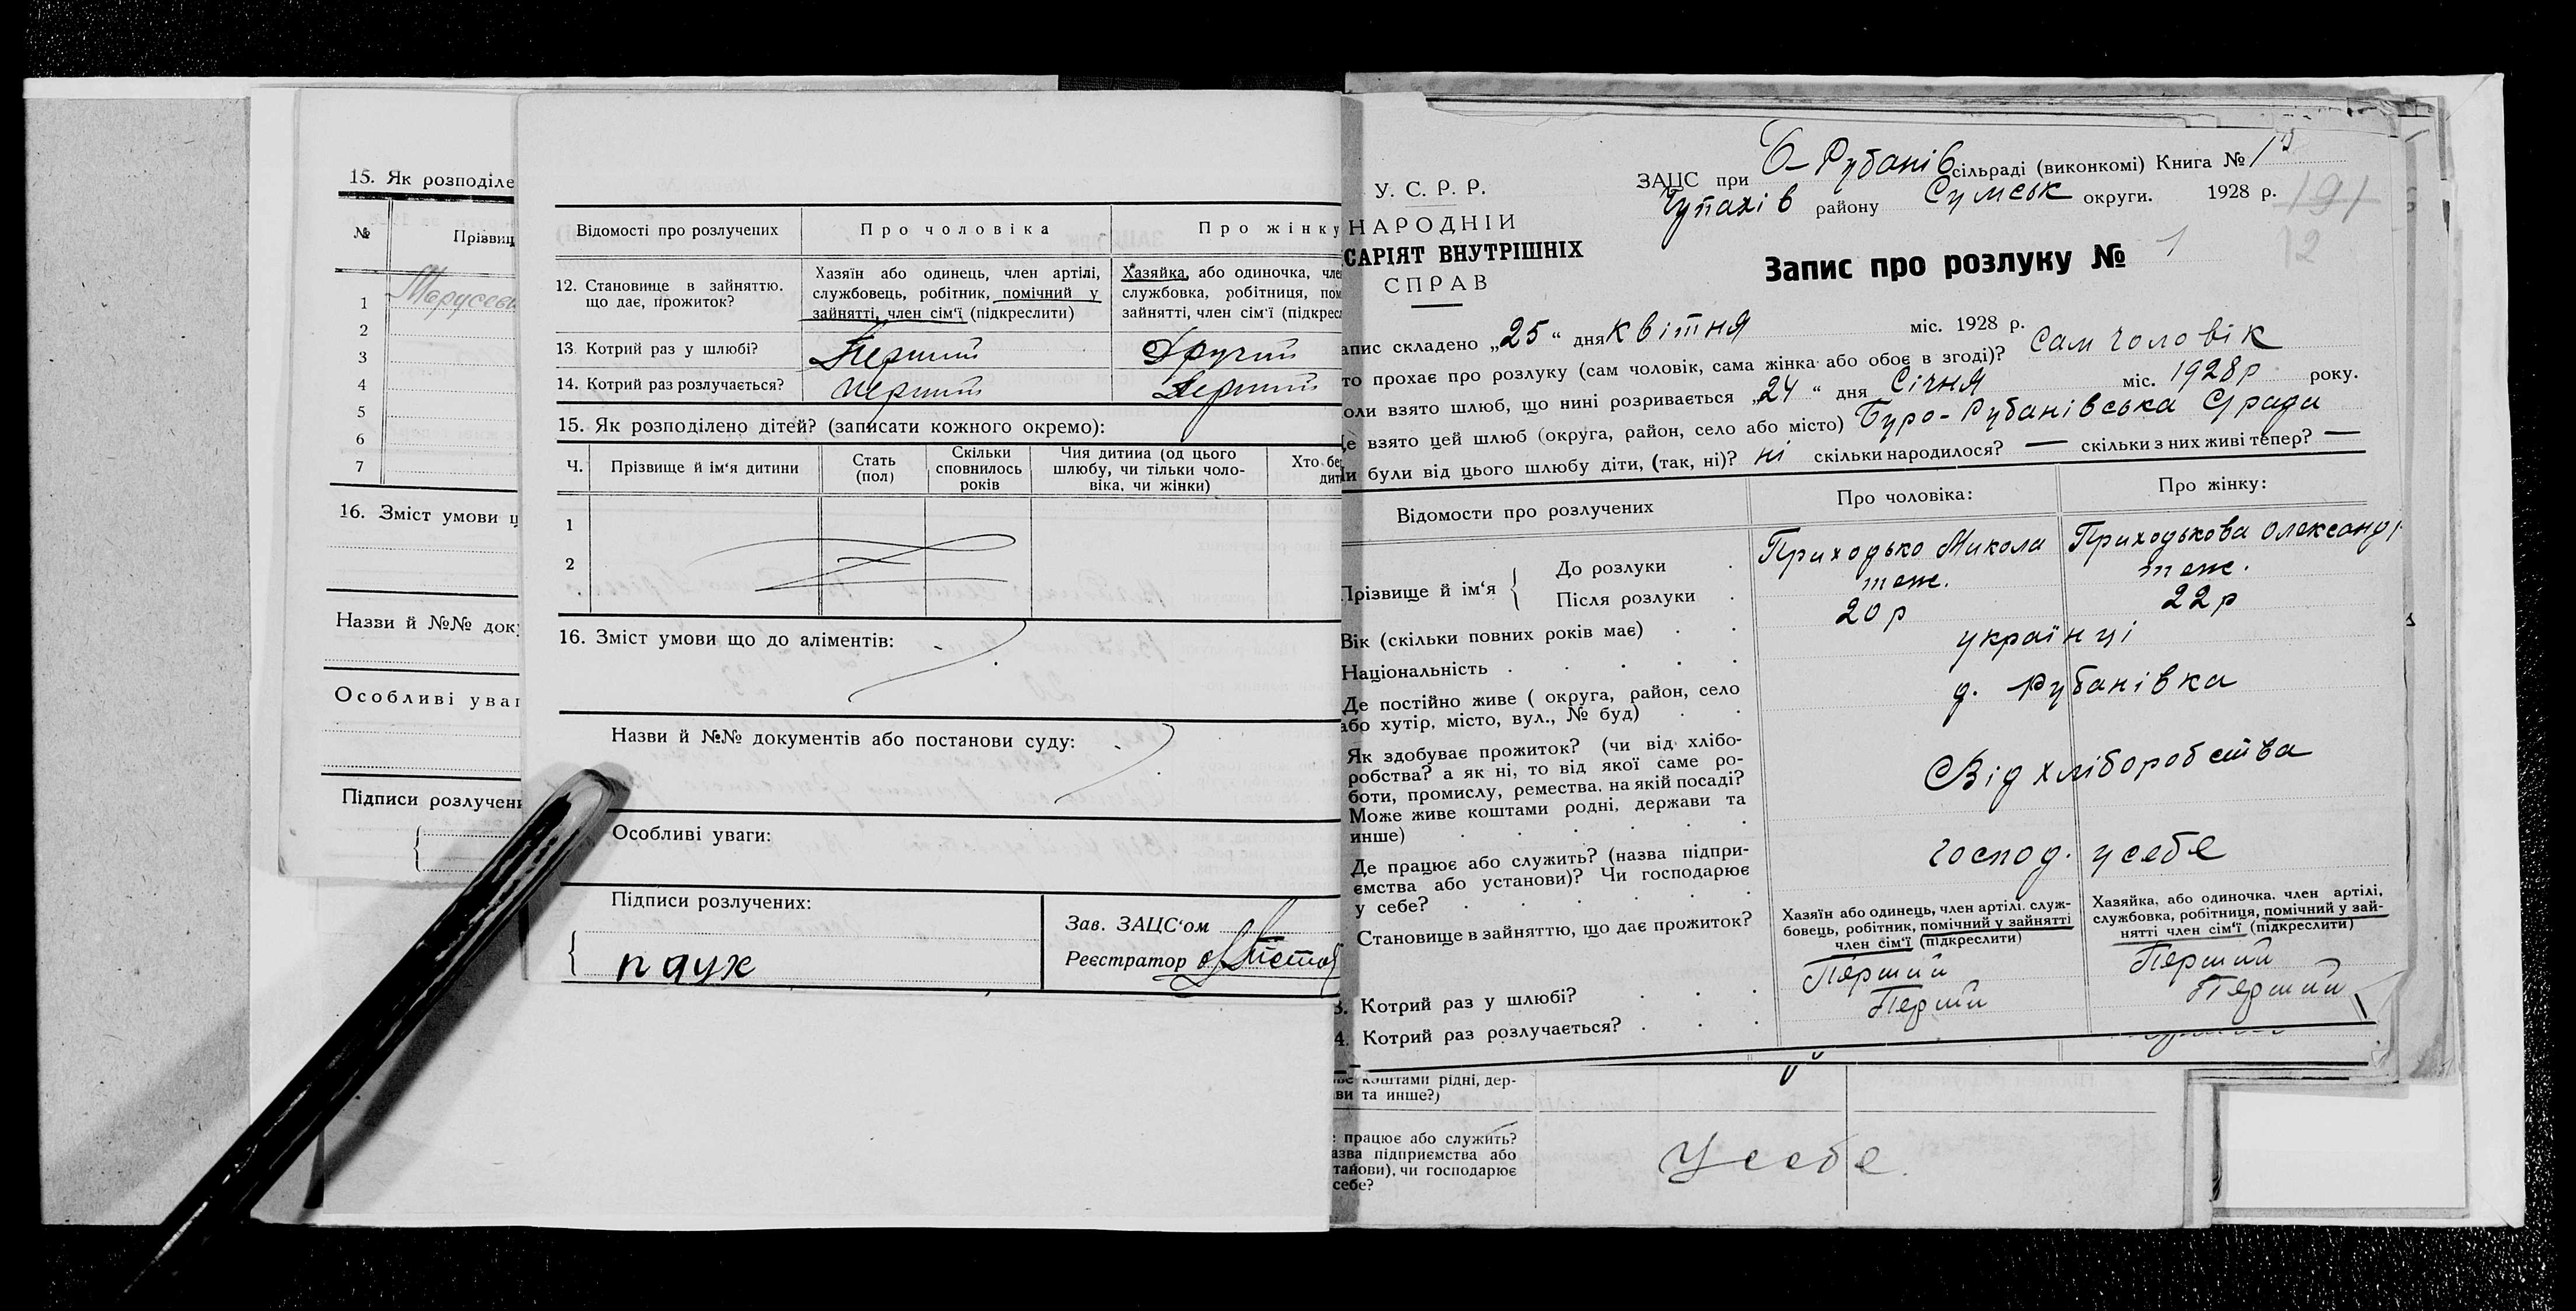 15. Як розподіле
№
Прізвищ
1
2
3
4
5
6
7
16. Зміст умови щ
Назви й №№ док
Особливі уваг
Підписи розлучен
Відомості про розлучених
Про чоловіка
Про жінку
12. Становище в зайняттю.
що дає, прожиток?
Хазяїн або одинець, член артілі,
службовець, робітник, помічний у
зайнятті, член сім'ї (підкреслити)
Хазяйка, або одиночка, чле
службовка, робітниця, пом
зайнятті, член сім'ї (підкресл
13. Котрий раз у шлюбі?
Перший
Другий
14. Котрий раз розлучається?
перший
Перший
15. Як розподілено дітей? (записати кожного окремо):
Ч.
Прізвище й ім'я дитини
Стать
(пол)
Скільки
сповнилось
років
Чия дитина (од цього
шлюбу, чи тільки чоло-
віка, чи жінки)
Хто бе
дит
1
2
16. Зміст умови що до аліментів:
Назви й №№ документів або постанови суду:
Особливі уваги:
Підписи розлучених:
Зав. ЗАЦС'ом
Реєстратор
У. С. Р. Р.
НАРОДНІЙ
САРІЯТ ВНУТРІШНІХ
СПРАВ
ЗАЦС при Б-Рубанів сільраді (виконкомі) Книга № 1
Чупахів району Сумськ округи. 1928 р.
191
12
Запис про розлуку № 1
апис складено „25“ дня квітня міс. 1928 р.
то прохає про розлуку (сам чоловік, сама жінка або обоє в згоді)? Сам чоловік
оли взято шлюб, що нині розривається „24“ дня Січня міс. 1928р року.
е взято цей шлюб (округа, район, село або місто) Буро-Рубанівська С/рада
и були від цього шлюбу діти, (так, ні)? ні скільки народилося? — скільки з них живі тепер? —
Відомости про розлучених
Про чоловіка:
Про жінку:
Прізвище й ім'я
До розлуки
Приходько Микола
Приходькова Олександ
Після розлуки
теж.
теж.
Вік (скільки повних років має)
20 р
22 р
Національність
українці
Де постійно живе ( округа, район, село
або хутір, місто, вул., № буд)
д. Рубанівка
Як здобуває прожиток? (чи від хлібо-
робства? а як ні, то від якої саме ро-
боти, промислу, ремества. на якій посаді?
Може живе коштами родні, держави та
инше)
Від хліборобства
Де працює або служить? (назва підпри-
ємства або установи)? Чи господарює
у себе?
господ. у себе
Становище в зайняттю, що дає прожиток?
Хазяїн або одинець, член артілі. служ-
бовець, робітник, помічний у зайнятті
член сім'ї (підкреслити)
Хазяйка, або одиночка. член артілі,
службовка, робітниця, помічний у зай-
нятті член сім'ї (підкреслити)
3. Котрий раз у шлюбі?
Перший
Перший
4. Котрий раз розлучається?
Перший
Перший
коштами рідні, дер-
ви та инше?)
працює або служить?
азва підприємства або
танови), чи господарює
себе?
У себе.